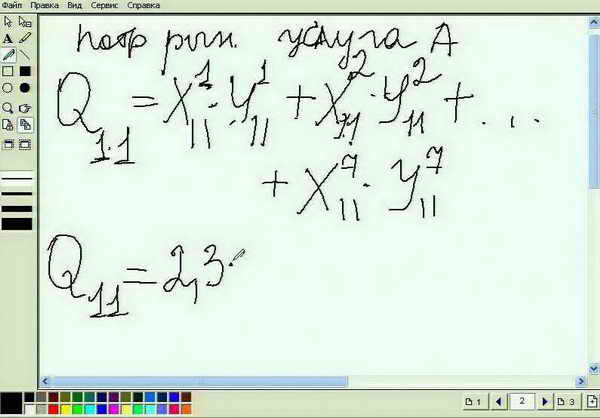 Файл Правка Вид Сервис Справка
потр рын. услуга А
Q₁.₁ = X₁₁¹ · Y₁₁¹ + X₁₁² · Y₁₁² + . . .
+ X₁₁⁷ · Y₁₁⁷
Q₁₁ = 2,3 ·
1 2 3